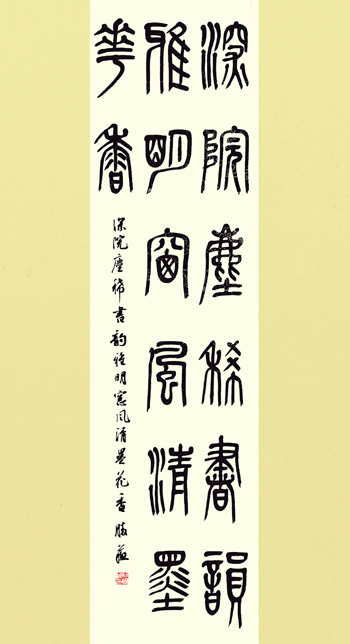 深院塵稀書韻
雅明窗風清墨
華香
深院塵稀書韵雅明窓風清墨花香